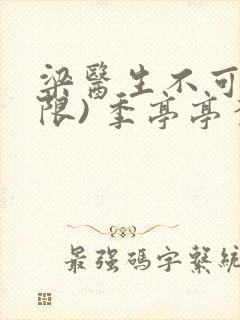 梁醫生不可
限) 季亭亭
最強碼字繫統